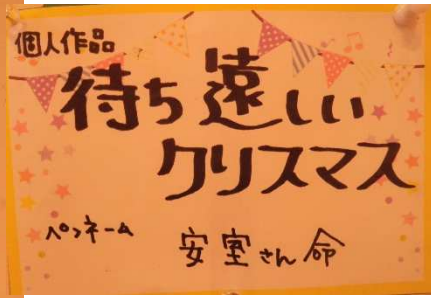 個人作品
待ち遠しい
クリスマス
ペンネーム
安室さん命